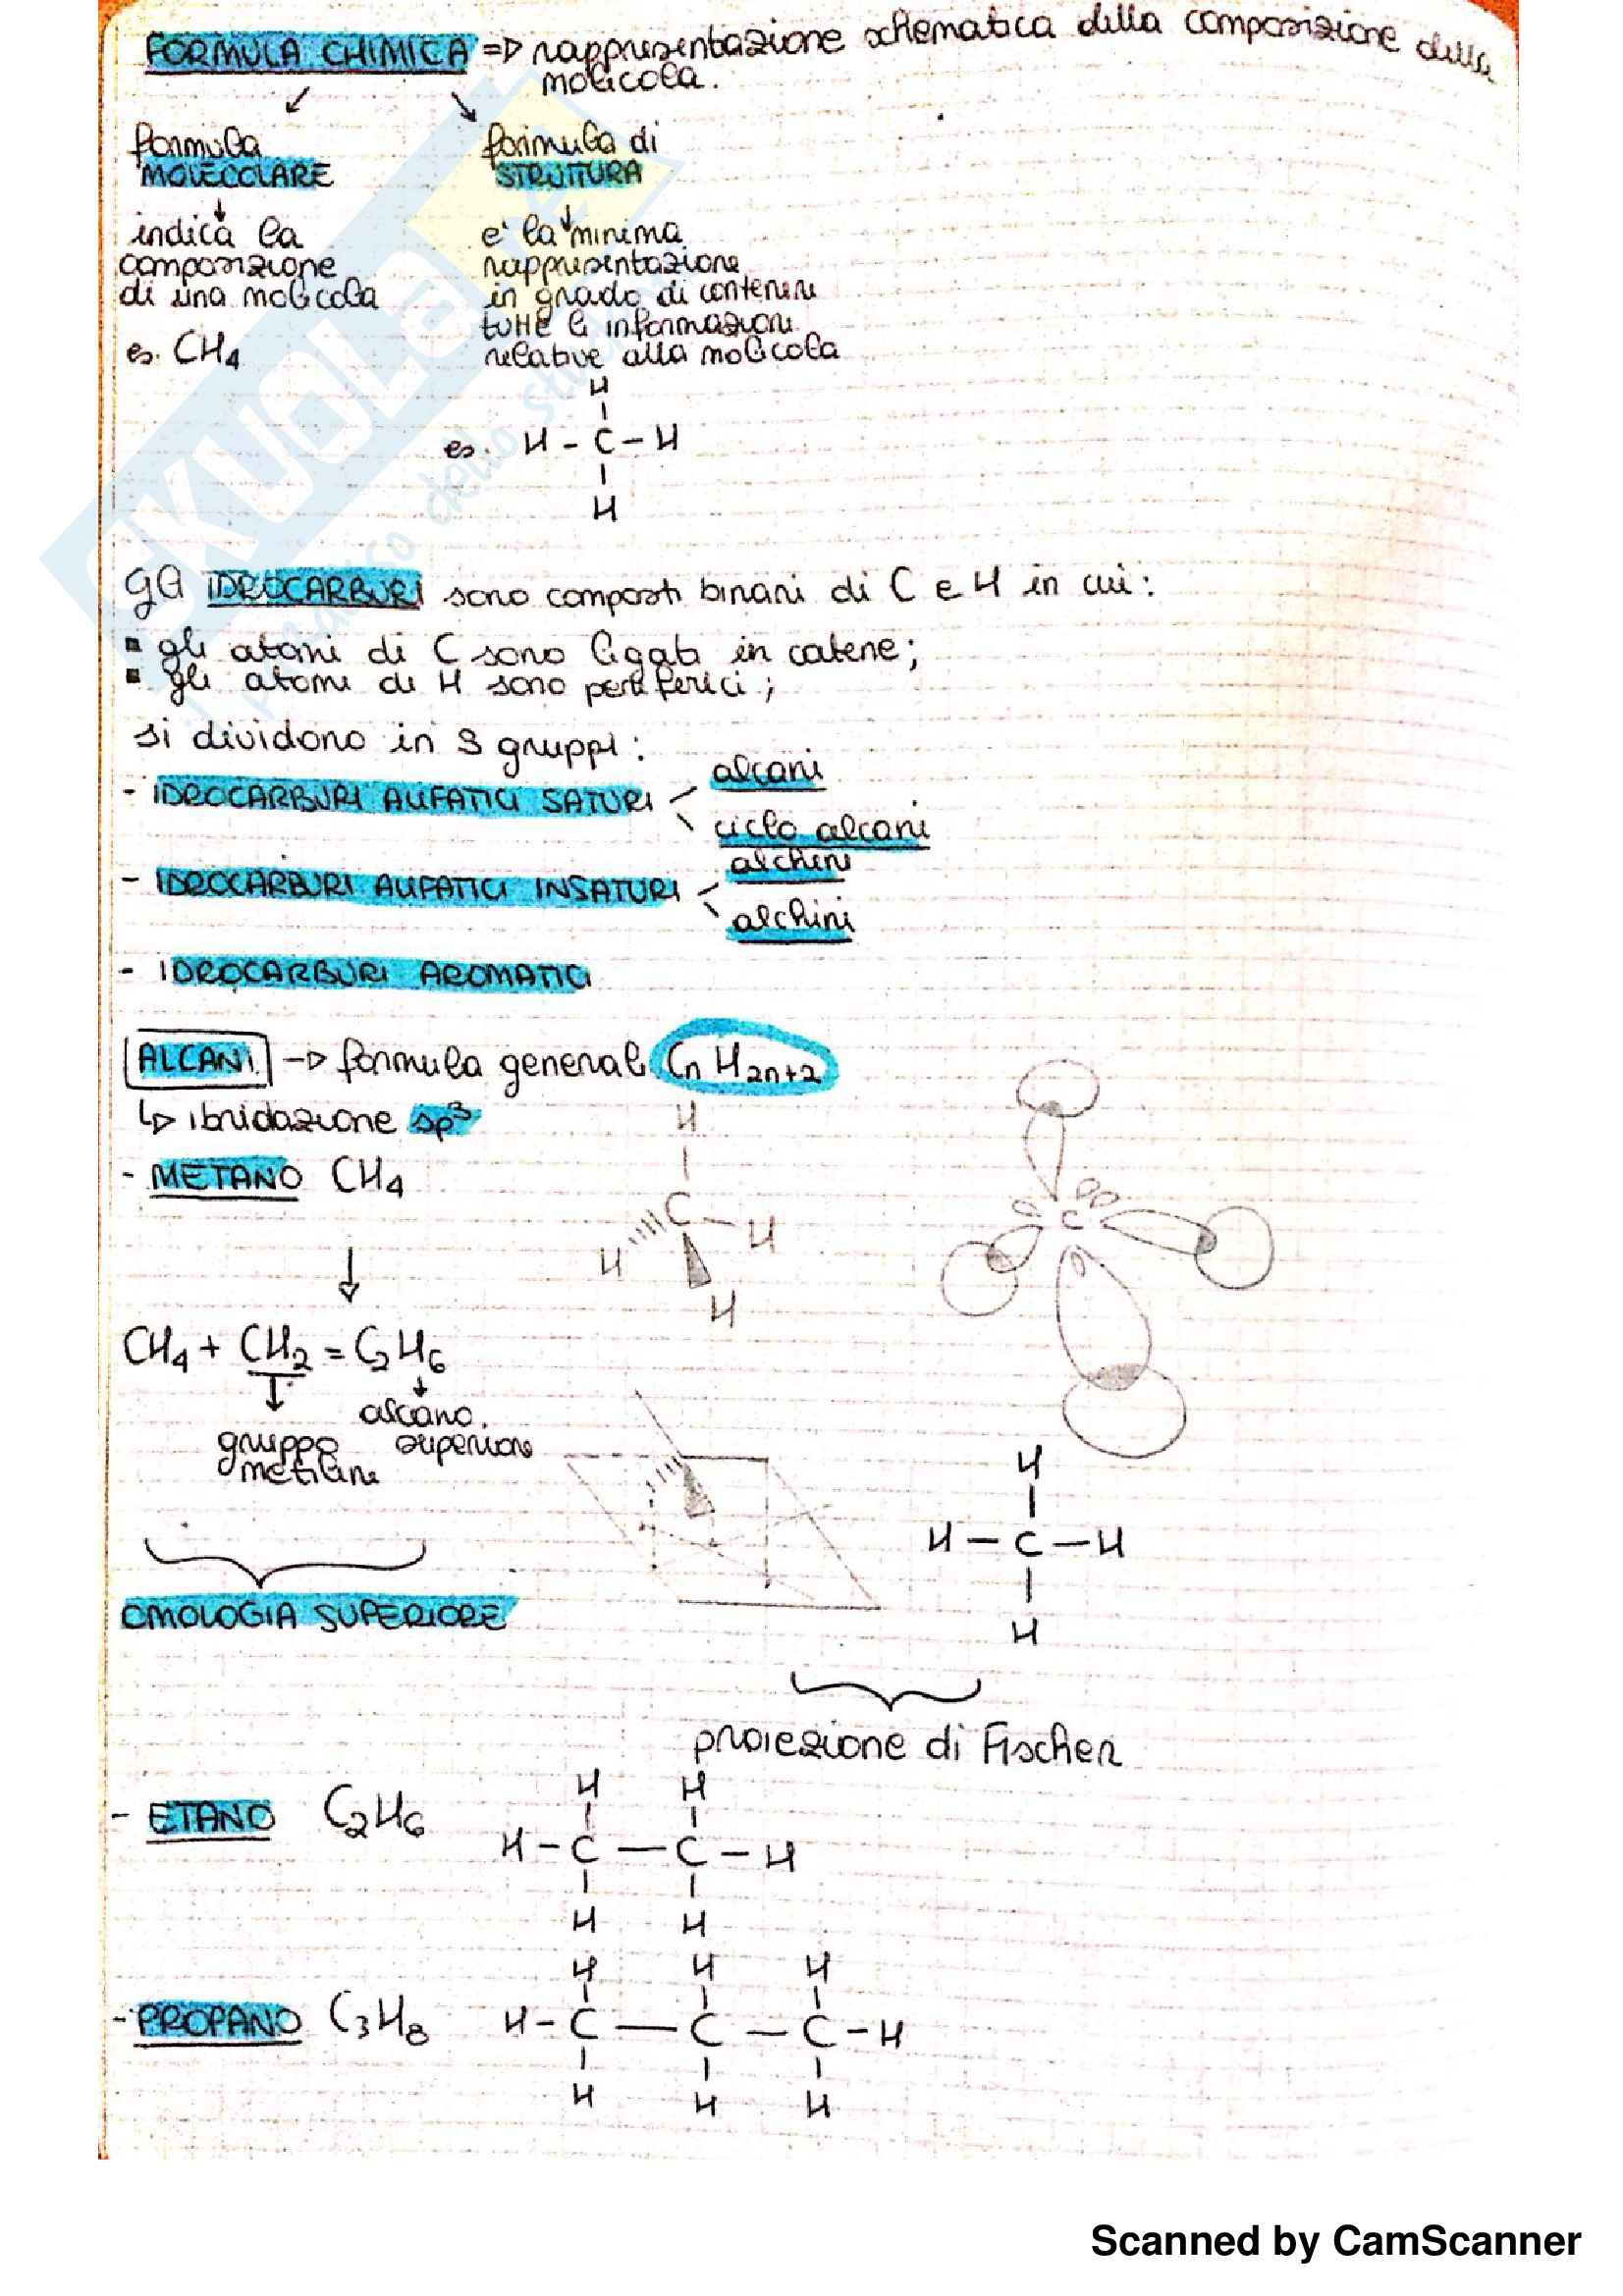 FORMULA CHIMICA => rappresentazione schematica della composizione della
molecola.
formula
MOLECOLARE
indica la
composizione
di una molecola
es. CH4
formula di
STRUTTURA
e' la minima
rappresentazione
in grado di contenere
tutte le informazioni
relative alla molecola
H
es. H - C - H
H
gli IDROCARBURI sono composti binari di C e H in cui:
▪ gli atomi di C sono legati in catene;
▪ gli atomi di H sono periferici;
si dividono in 3 gruppi:
- IDROCARBURI ALIFATICI SATURI
alcani
ciclo alcani
- IDROCARBURI ALIFATICI INSATURI
alcheni
alchini
- IDROCARBURI AROMATICI
ALCANI → formula generale CnH2n+2
↳ ibridazione sp3
- METANO CH4
H
C
H H
H
C
CH4 + CH2 = C2H6
gruppo
metilene
alcano
superiore
OMOLOGIA SUPERIORE
H
H - C - H
H
proiezione di Fischer
- ETANO C2H6
H H
H - C - C - H
H H
- PROPANO C3H8
H H H
H - C - C - C - H
H H H
SKUOLA.net
Scanned by CamScanner